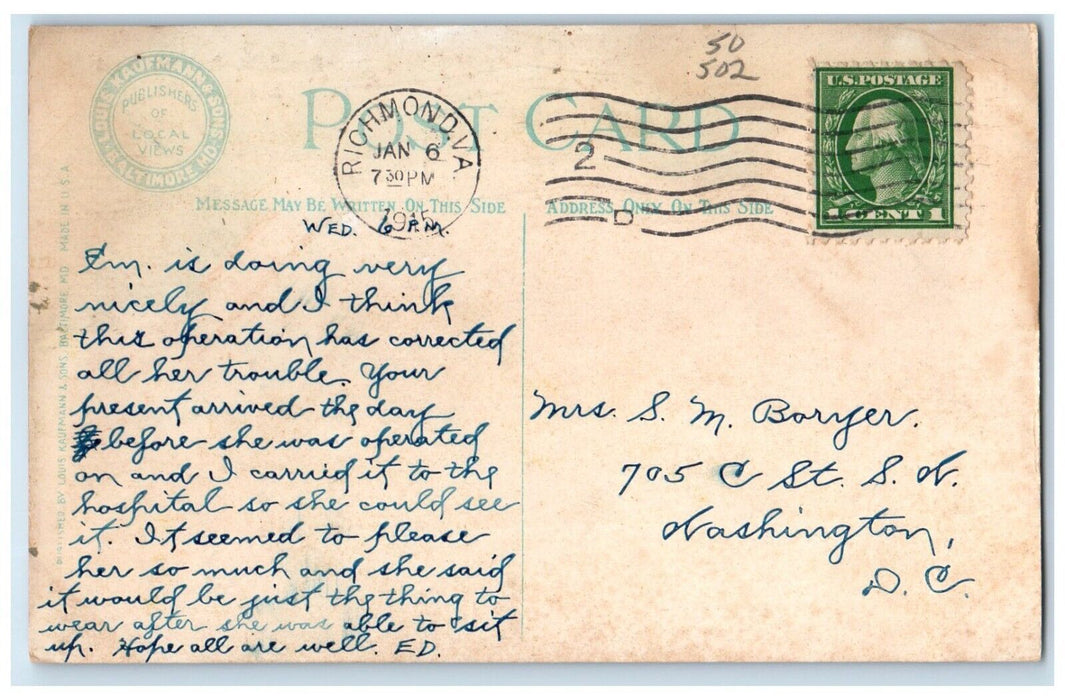 50
502
U.S. POSTAGE
1 CENT 1
LOUIS KAUFMANN & SONS
BALTIMORE MD.
PUBLISHERS
OF
LOCAL
VIEWS
POST CARD
RICHMOND, VA
JAN 6
7 30 PM
1915
2
D
MESSAGE MAY BE WRITTEN ON THIS SIDE
ADDRESS ONLY ON THIS SIDE
PUBLISHED BY LOUIS KAUFMANN & SONS, BALTIMORE, MD. MADE IN U.S.A.
WED. 6 P.M.
Em. is doing very
nicely and I think
this operation has corrected
all her trouble. Your
present arrived the day
before she was operated
on and I carried it to the
hospital so she could see
it. It seemed to please
her so much and she said
it would be just the thing to
wear after she was able to sit
up. Hope all are well. ED.
Mrs. S. M. Boryer.
705 C St. S. W.
Washington,
D. C.